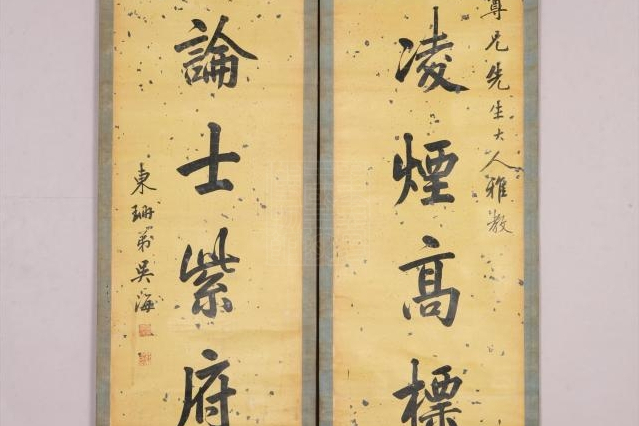 尊兄先生大人雅教
凌煙高標
論士紫府
東珊弟吳海